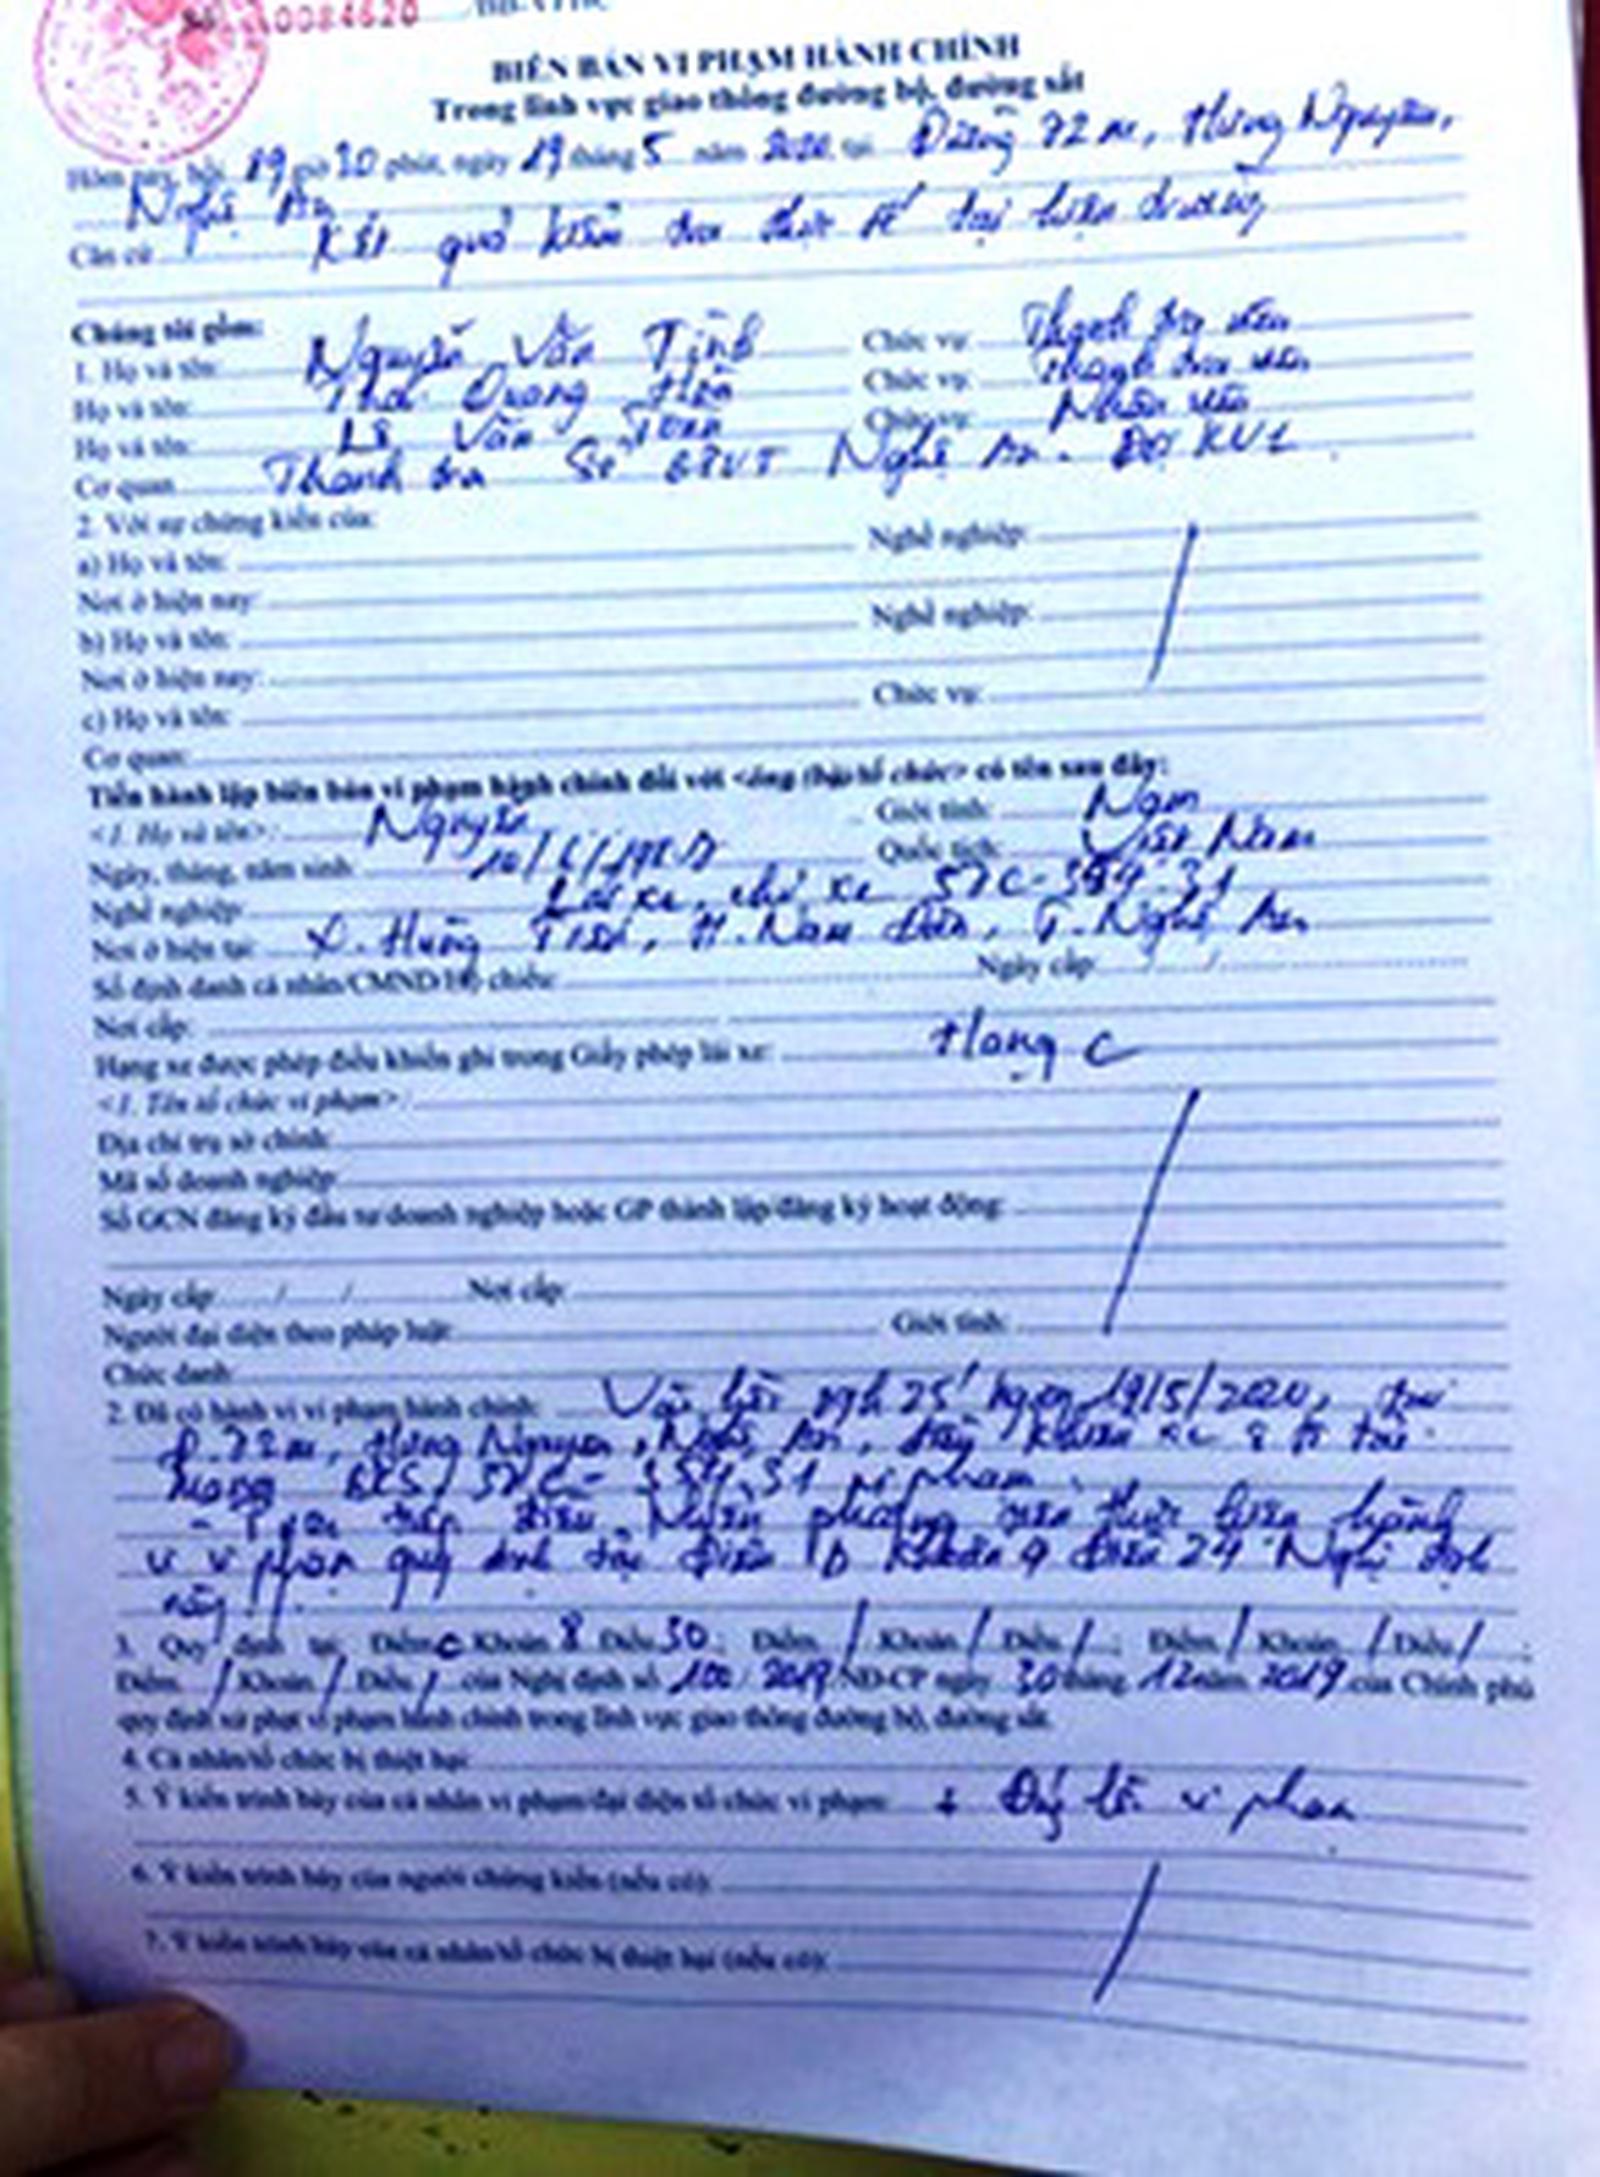 0084620
BIÊN BẢN VI PHẠM HÀNH CHÍNH
Trong lĩnh vực giao thông đường bộ, đường sắt
Hôm nay, hồi 19 giờ 30 phút, ngày 19 tháng 5 năm 2020, tại Đường 72 m, Hưng Nguyên,
Nghệ An
Căn cứ Kết quả kiểm tra thực tế tại hiện trường
Chúng tôi gồm:
1. Họ và tên: Nguyễn Văn Tịnh Chức vụ: Thanh tra viên
Họ và tên: Thái Quang Chức vụ: Thanh tra viên
Họ và tên: Lê Văn Chức vụ: Nhân viên
Cơ quan Thanh tra Sở GTVT Nghệ An - Đội KV1
2. Với sự chứng kiến của:
a) Họ và tên: Nghề nghiệp:
Nơi ở hiện nay:
b) Họ và tên: Nghề nghiệp:
Nơi ở hiện nay:
c) Họ và tên: Chức vụ:
Cơ quan:
Tiến hành lập biên bản vi phạm hành chính đối với <ông (bà)/tổ chức> có tên sau đây:
<1. Họ và tên>: Nguyễn Giới tính: Nam
Ngày, tháng, năm sinh: Quốc tịch: Việt Nam
Nghề nghiệp: Lái xe, chủ xe 37C-
Nơi ở hiện tại: X. Hùng Tiến, H. Nam Đàn, T. Nghệ An
Số định danh cá nhân/CMND/Hộ chiếu: Ngày cấp: / /
Nơi cấp:
Hạng xe được phép điều khiển ghi trong Giấy phép lái xe: Hạng C
<1. Tên tổ chức vi phạm>:
Địa chỉ trụ sở chính:
Mã số doanh nghiệp:
Số GCN đăng ký đầu tư/doanh nghiệp hoặc GP thành lập/đăng ký hoạt động:
Ngày cấp: / / Nơi cấp:
Người đại diện theo pháp luật: Giới tính:
Chức danh:
2. Đã có hành vi vi phạm hành chính: Vào hồi 19h 25' ngày 19/5/2020, tại
Đ. 72m, Hưng Nguyên, Nghệ An, điều khiển xe ô tô tải
mang BKS 37C- vi phạm:
- Trực tiếp điều khiển phương tiện thực hiện hành
vi vi phạm quy định tại Điểm b Khoản 9 Điều 24 Nghị định
này
3. Quy định tại: Điểm c Khoản 8 Điều 30; Điểm / Khoản / Điều /; Điểm / Khoản / Điều /;
Điểm / Khoản / Điều / của Nghị định số 100/2019/NĐ-CP ngày 30 tháng 12 năm 2019 của Chính phủ
quy định xử phạt vi phạm hành chính trong lĩnh vực giao thông đường bộ, đường sắt.
4. Cá nhân/tổ chức bị thiệt hại:
5. Ý kiến trình bày của cá nhân vi phạm/đại diện tổ chức vi phạm: lỗi vi phạm
6. Ý kiến trình bày của người chứng kiến (nếu có):
7. Ý kiến trình bày của cá nhân/tổ chức bị thiệt hại (nếu có):